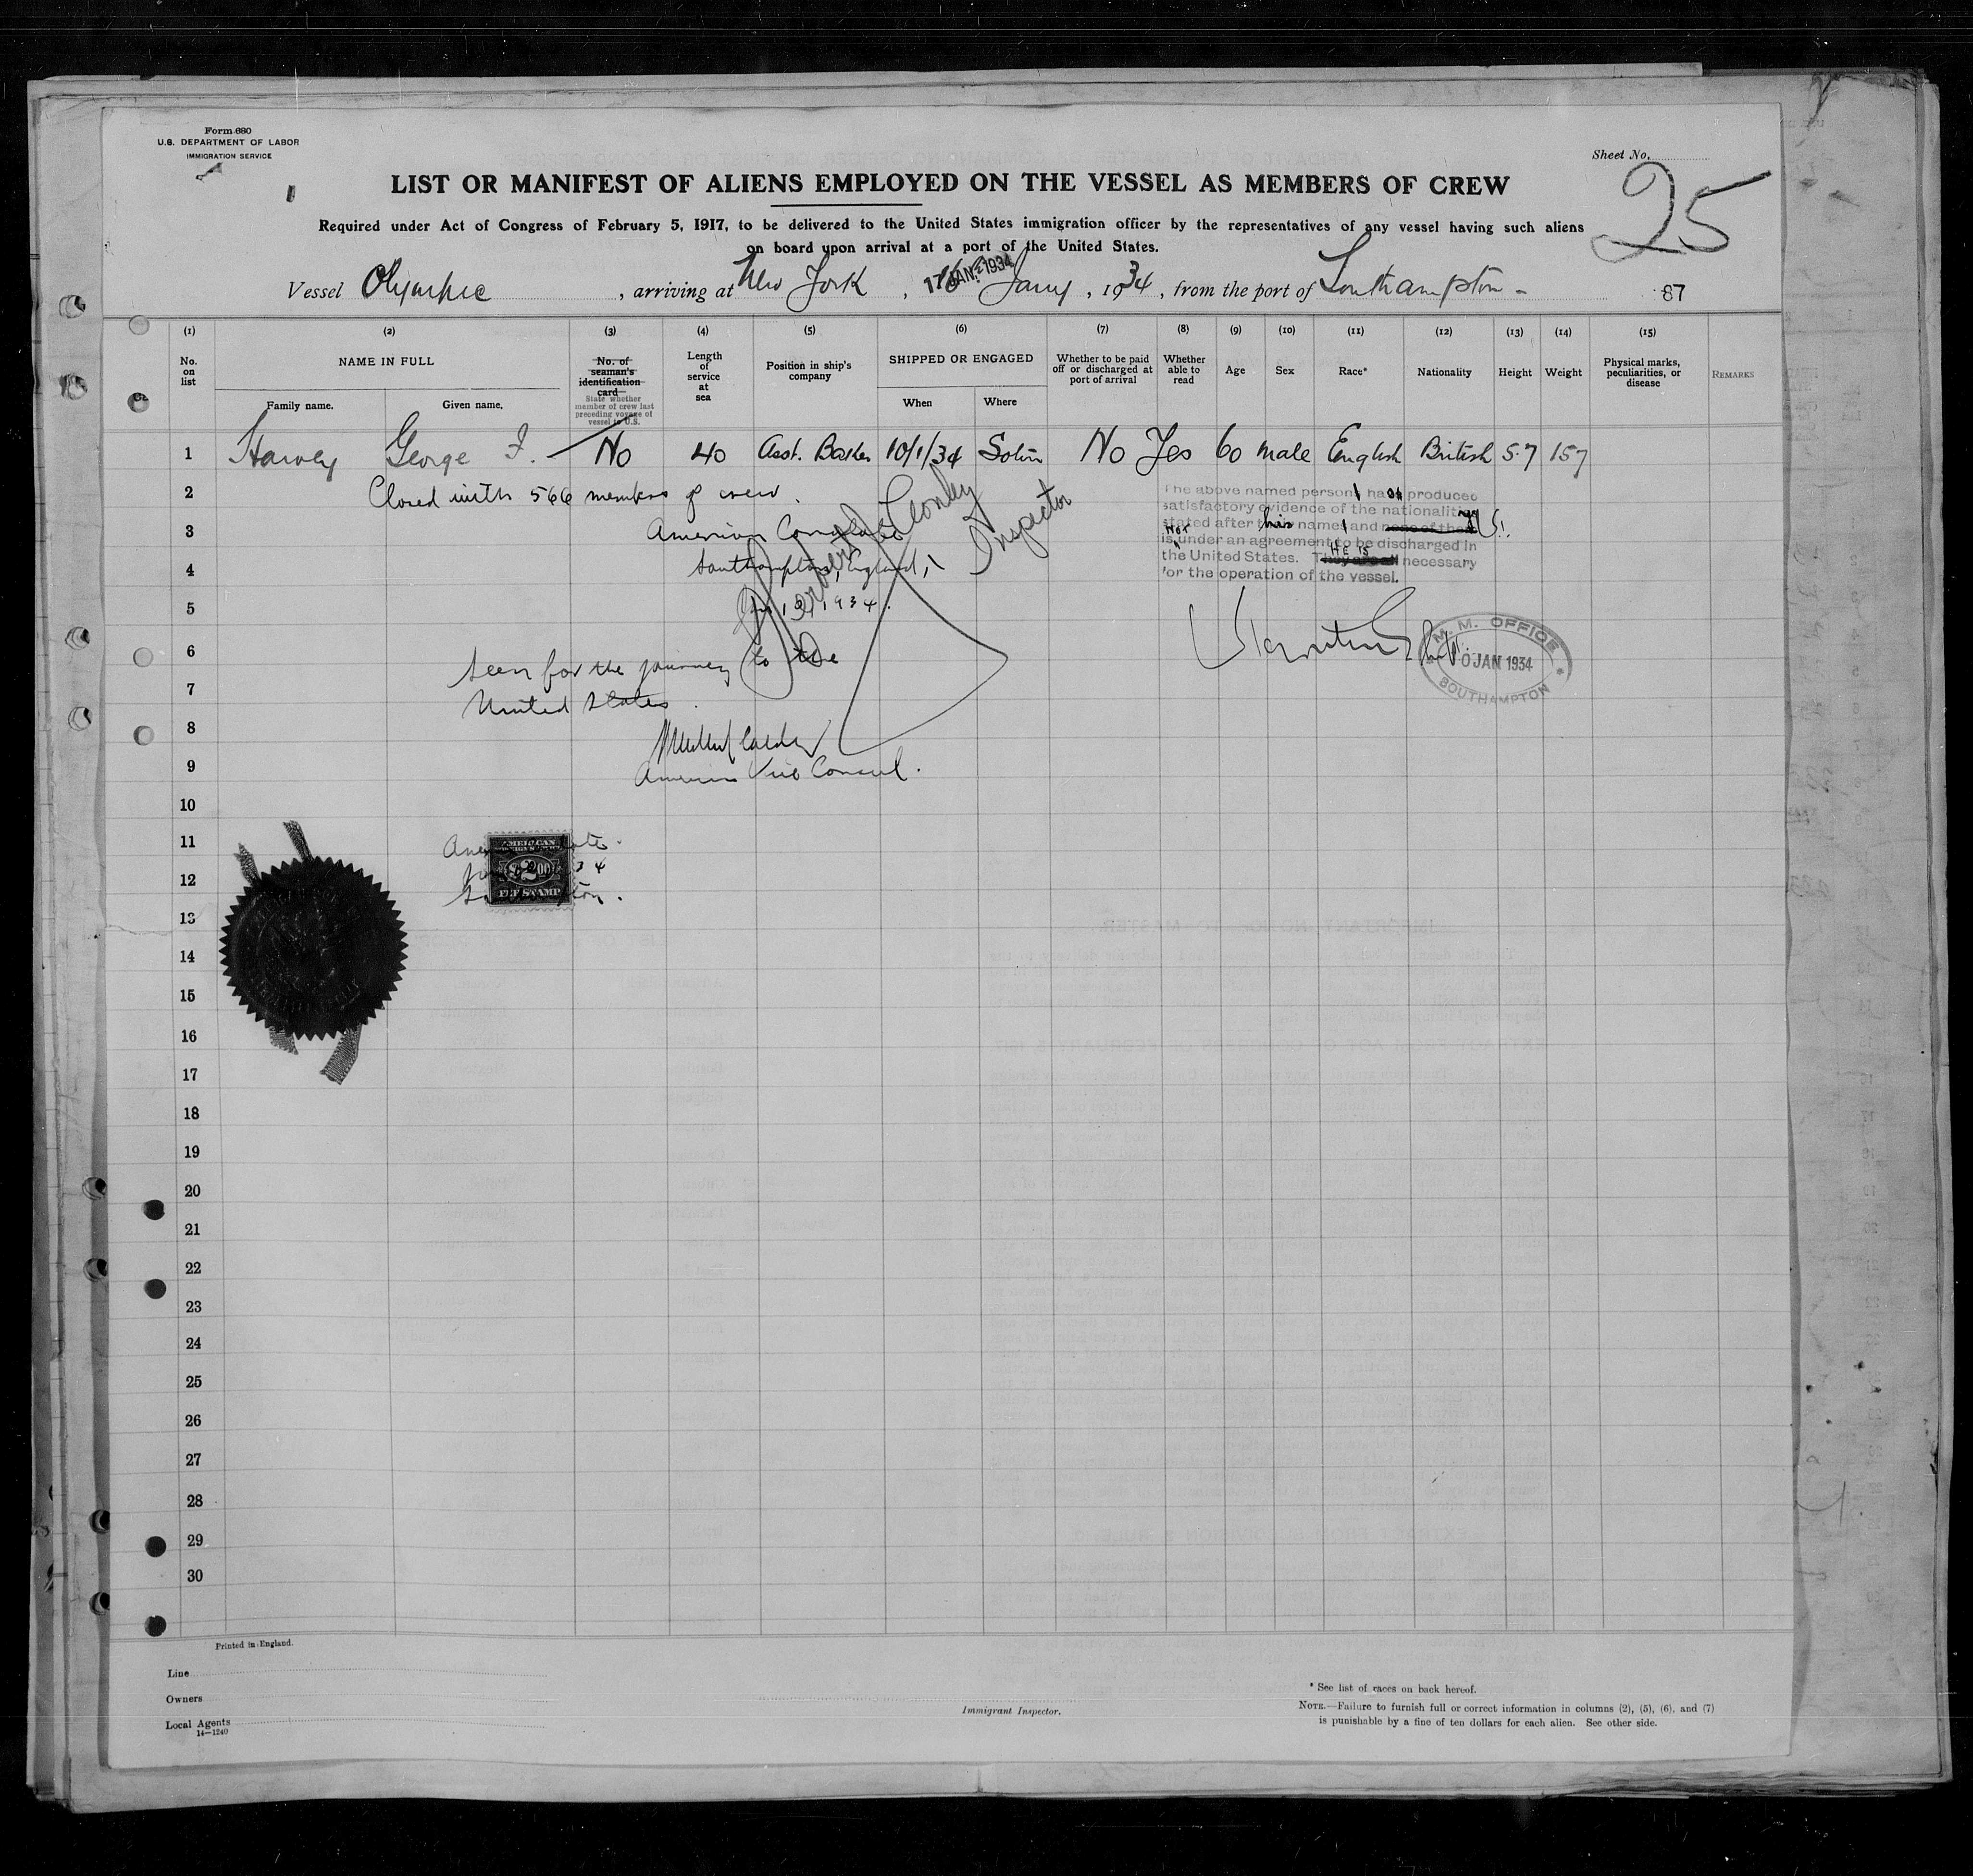 Form 680
U.S. DEPARTMENT OF LABOR
IMMIGRATION SERVICE
Sheet No.
25
LIST OR MANIFEST OF ALIENS EMPLOYED ON THE VESSEL AS MEMBERS OF CREW
Required under Act of Congress of February 5, 1917, to be delivered to the United States immigration officer by the representatives of any vessel having such aliens
on board upon arrival at a port of the United States.
Vessel Olympic, arriving at New York, 17 JAN 1934 Jany, 1934, from the port of Southampton -
87
(1) (2) (3) (4) (5) (6) (7) (8) (9) (10) (11) (12) (13) (14) (15)
No. on list
NAME IN FULL
Family name. Given name.
No. of seaman's identification card
State whether member of crew last preceding voyage of vessel to U.S.
Length of service at sea
Position in ship's company
SHIPPED OR ENGAGED
When Where
Whether to be paid off or discharged at port of arrival
Whether able to read
Age
Sex
Race*
Nationality
Height
Weight
Physical marks, peculiarities, or disease
REMARKS
1 Harvey George F. No 40 Asst. Baker 10/1/34 Soton No Yes 60 male English British 5.7 157
2 Closed with 566 members of crew.
3 American Consulate
4 Southampton, England,
5 1934.
6 Seen for the journey to the
7 United States.
8
9 American Vice Consul.
Inspector
The above named person has produced
satisfactory evidence of the nationality
stated after his name and none of them
is not under an agreement to be discharged in
the United States. HE IS They are all necessary
for the operation of the vessel.
M. M. OFFICE
0 JAN 1934
SOUTHAMPTON
10
11
12
AMERICAN
$2.00
FEE STAMP
34
13
14
15
16
17
18
19
20
21
22
23
24
25
26
27
28
29
30
Printed in England.
Line
Owners
Local Agents
14—1240
Immigrant Inspector.
* See list of races on back hereof.
NOTE.—Failure to furnish full or correct information in columns (2), (5), (6), and (7)
is punishable by a fine of ten dollars for each alien. See other side.